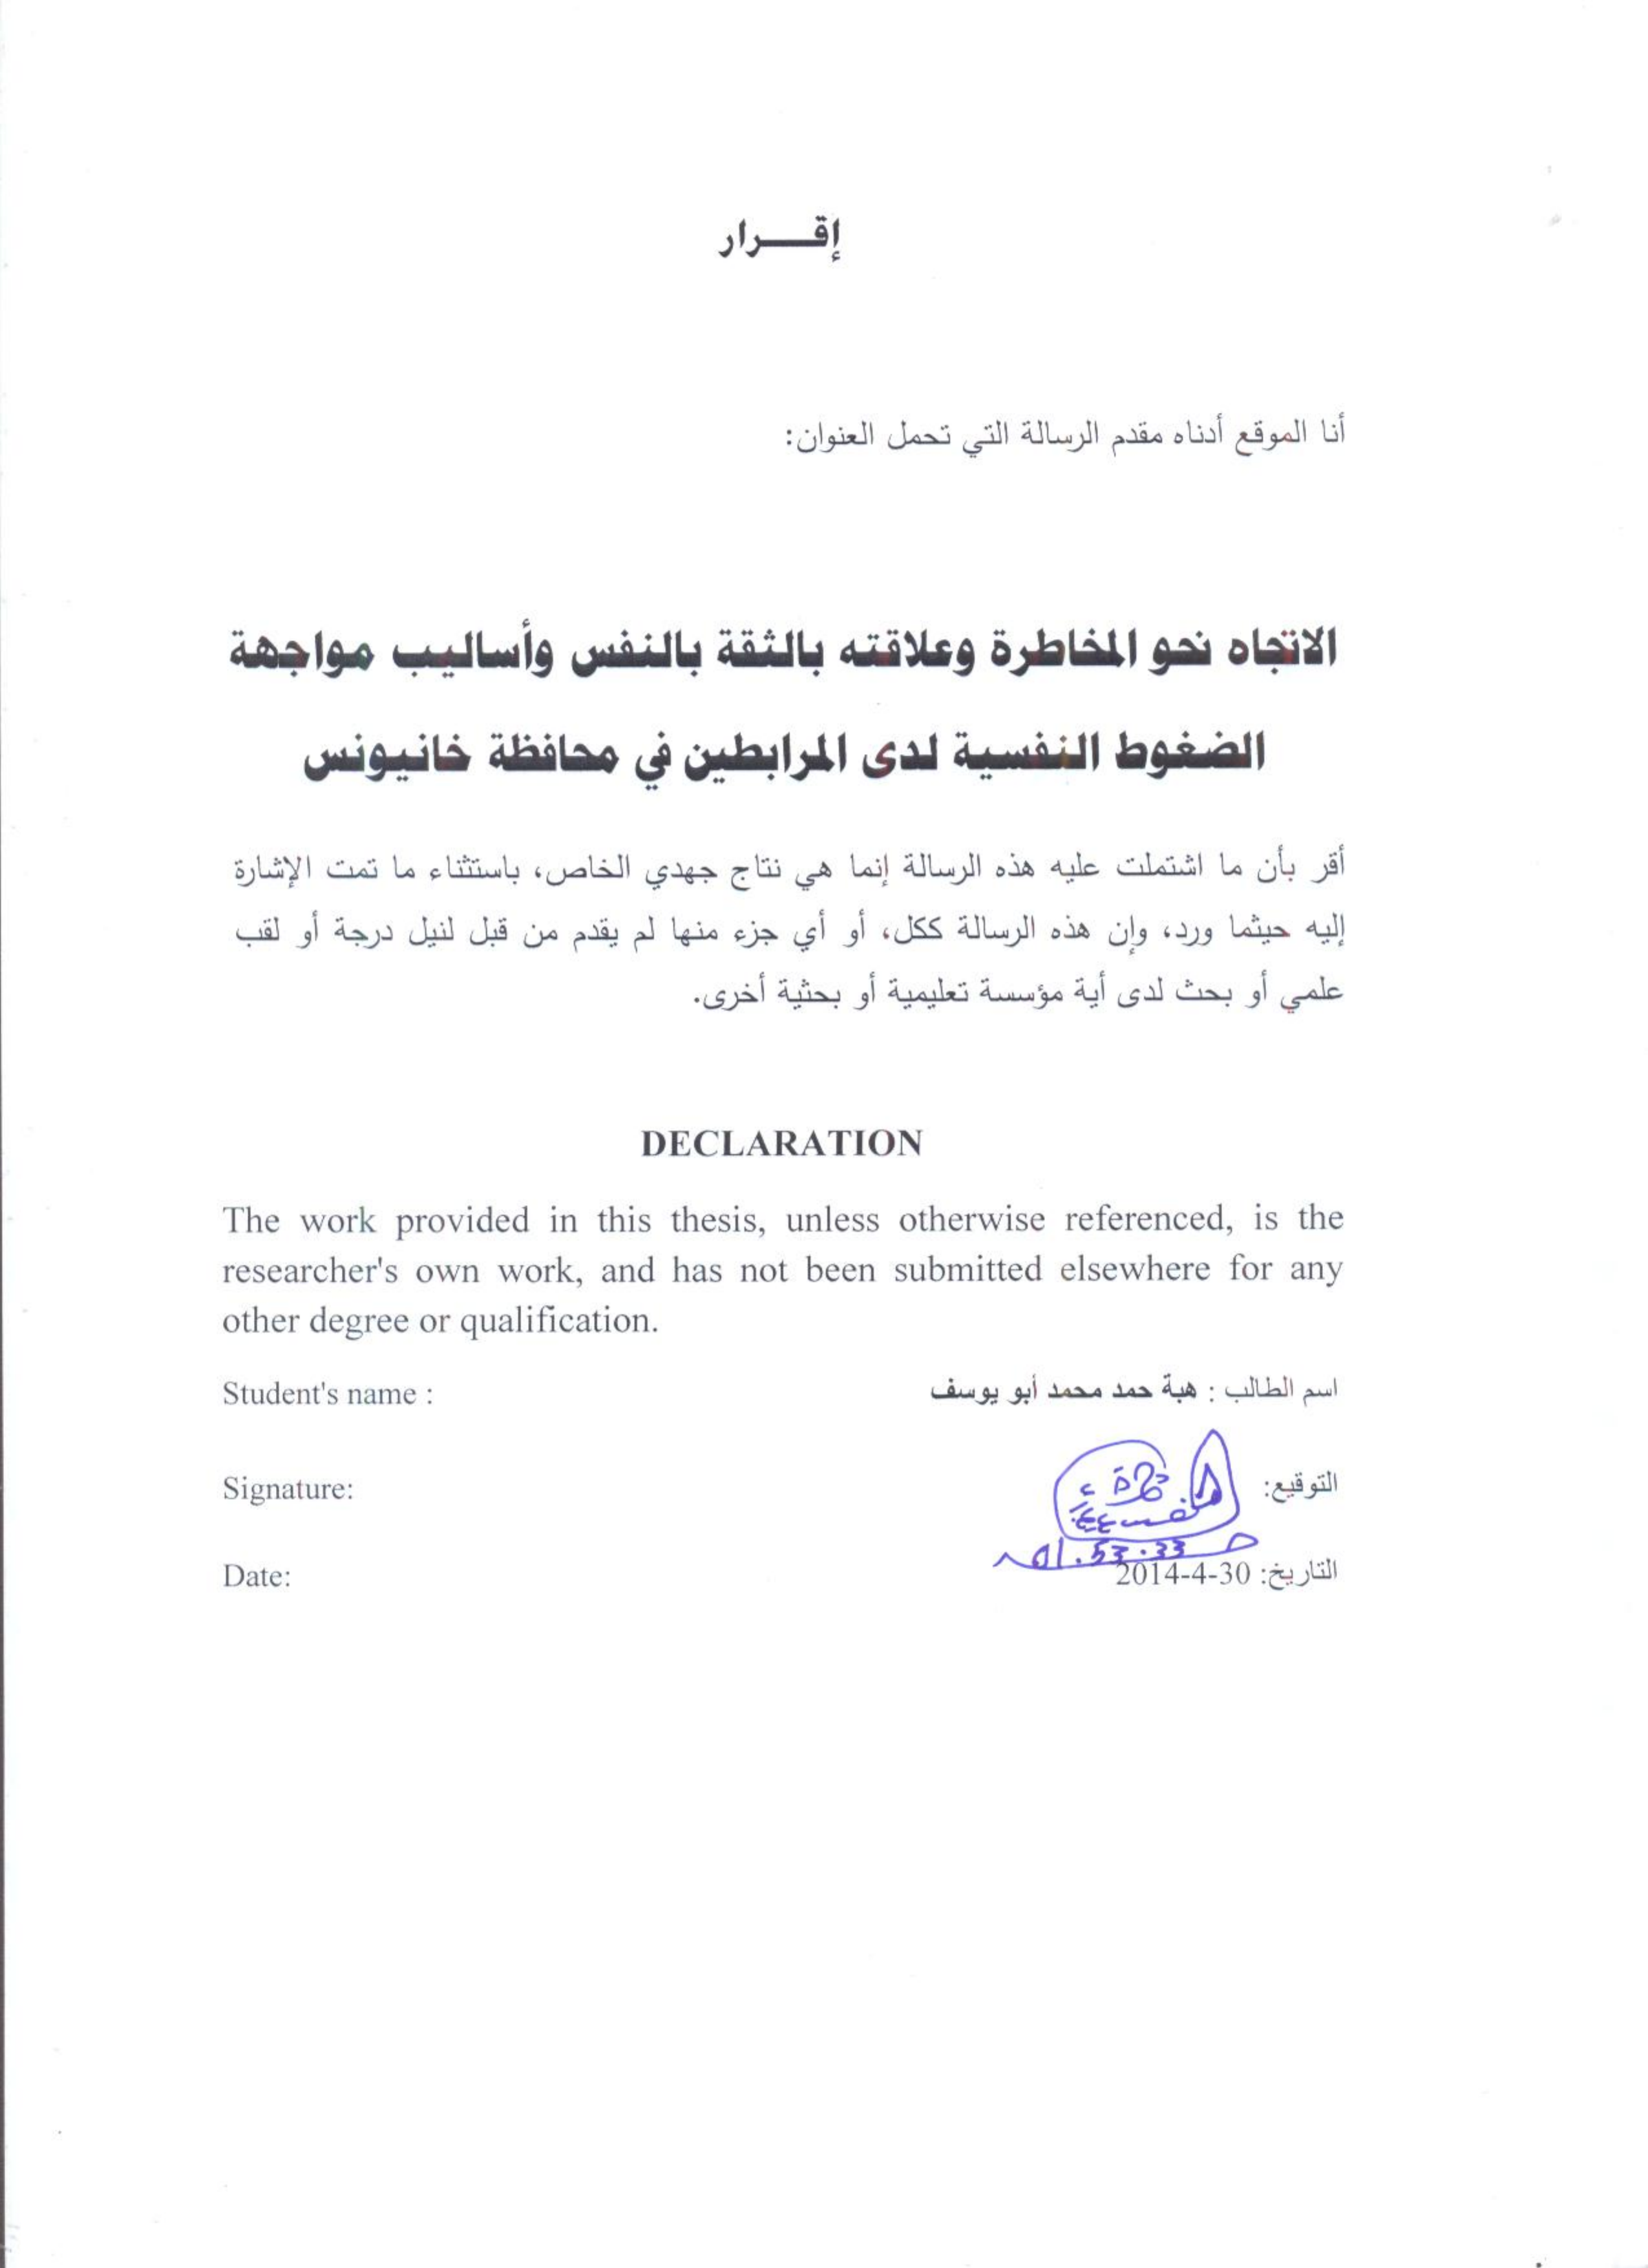 إقـــرار
أنا الموقع أدناه مقدم الرسالة التي تحمل العنوان:
الاتجاه نحو المخاطرة وعلاقته بالثقة بالنفس وأساليب مواجهة
الضغوط النفسية لدى المرابطين في محافظة خانيونس
أقر بأن ما اشتملت عليه هذه الرسالة إنما هي نتاج جهدي الخاص، باستثناء ما تمت الإشارة
إليه حيثما ورد، وإن هذه الرسالة ككل، أو أي جزء منها لم يقدم من قبل لنيل درجة أو لقب
علمي أو بحث لدى أية مؤسسة تعليمية أو بحثية أخرى.
DECLARATION
The work provided in this thesis, unless otherwise referenced, is the
researcher's own work, and has not been submitted elsewhere for any
other degree or qualification.
Student's name :
اسم الطالب : هبة حمد محمد أبو يوسف
Signature:
التوقيع:
Date:
التاريخ: 30-4-2014